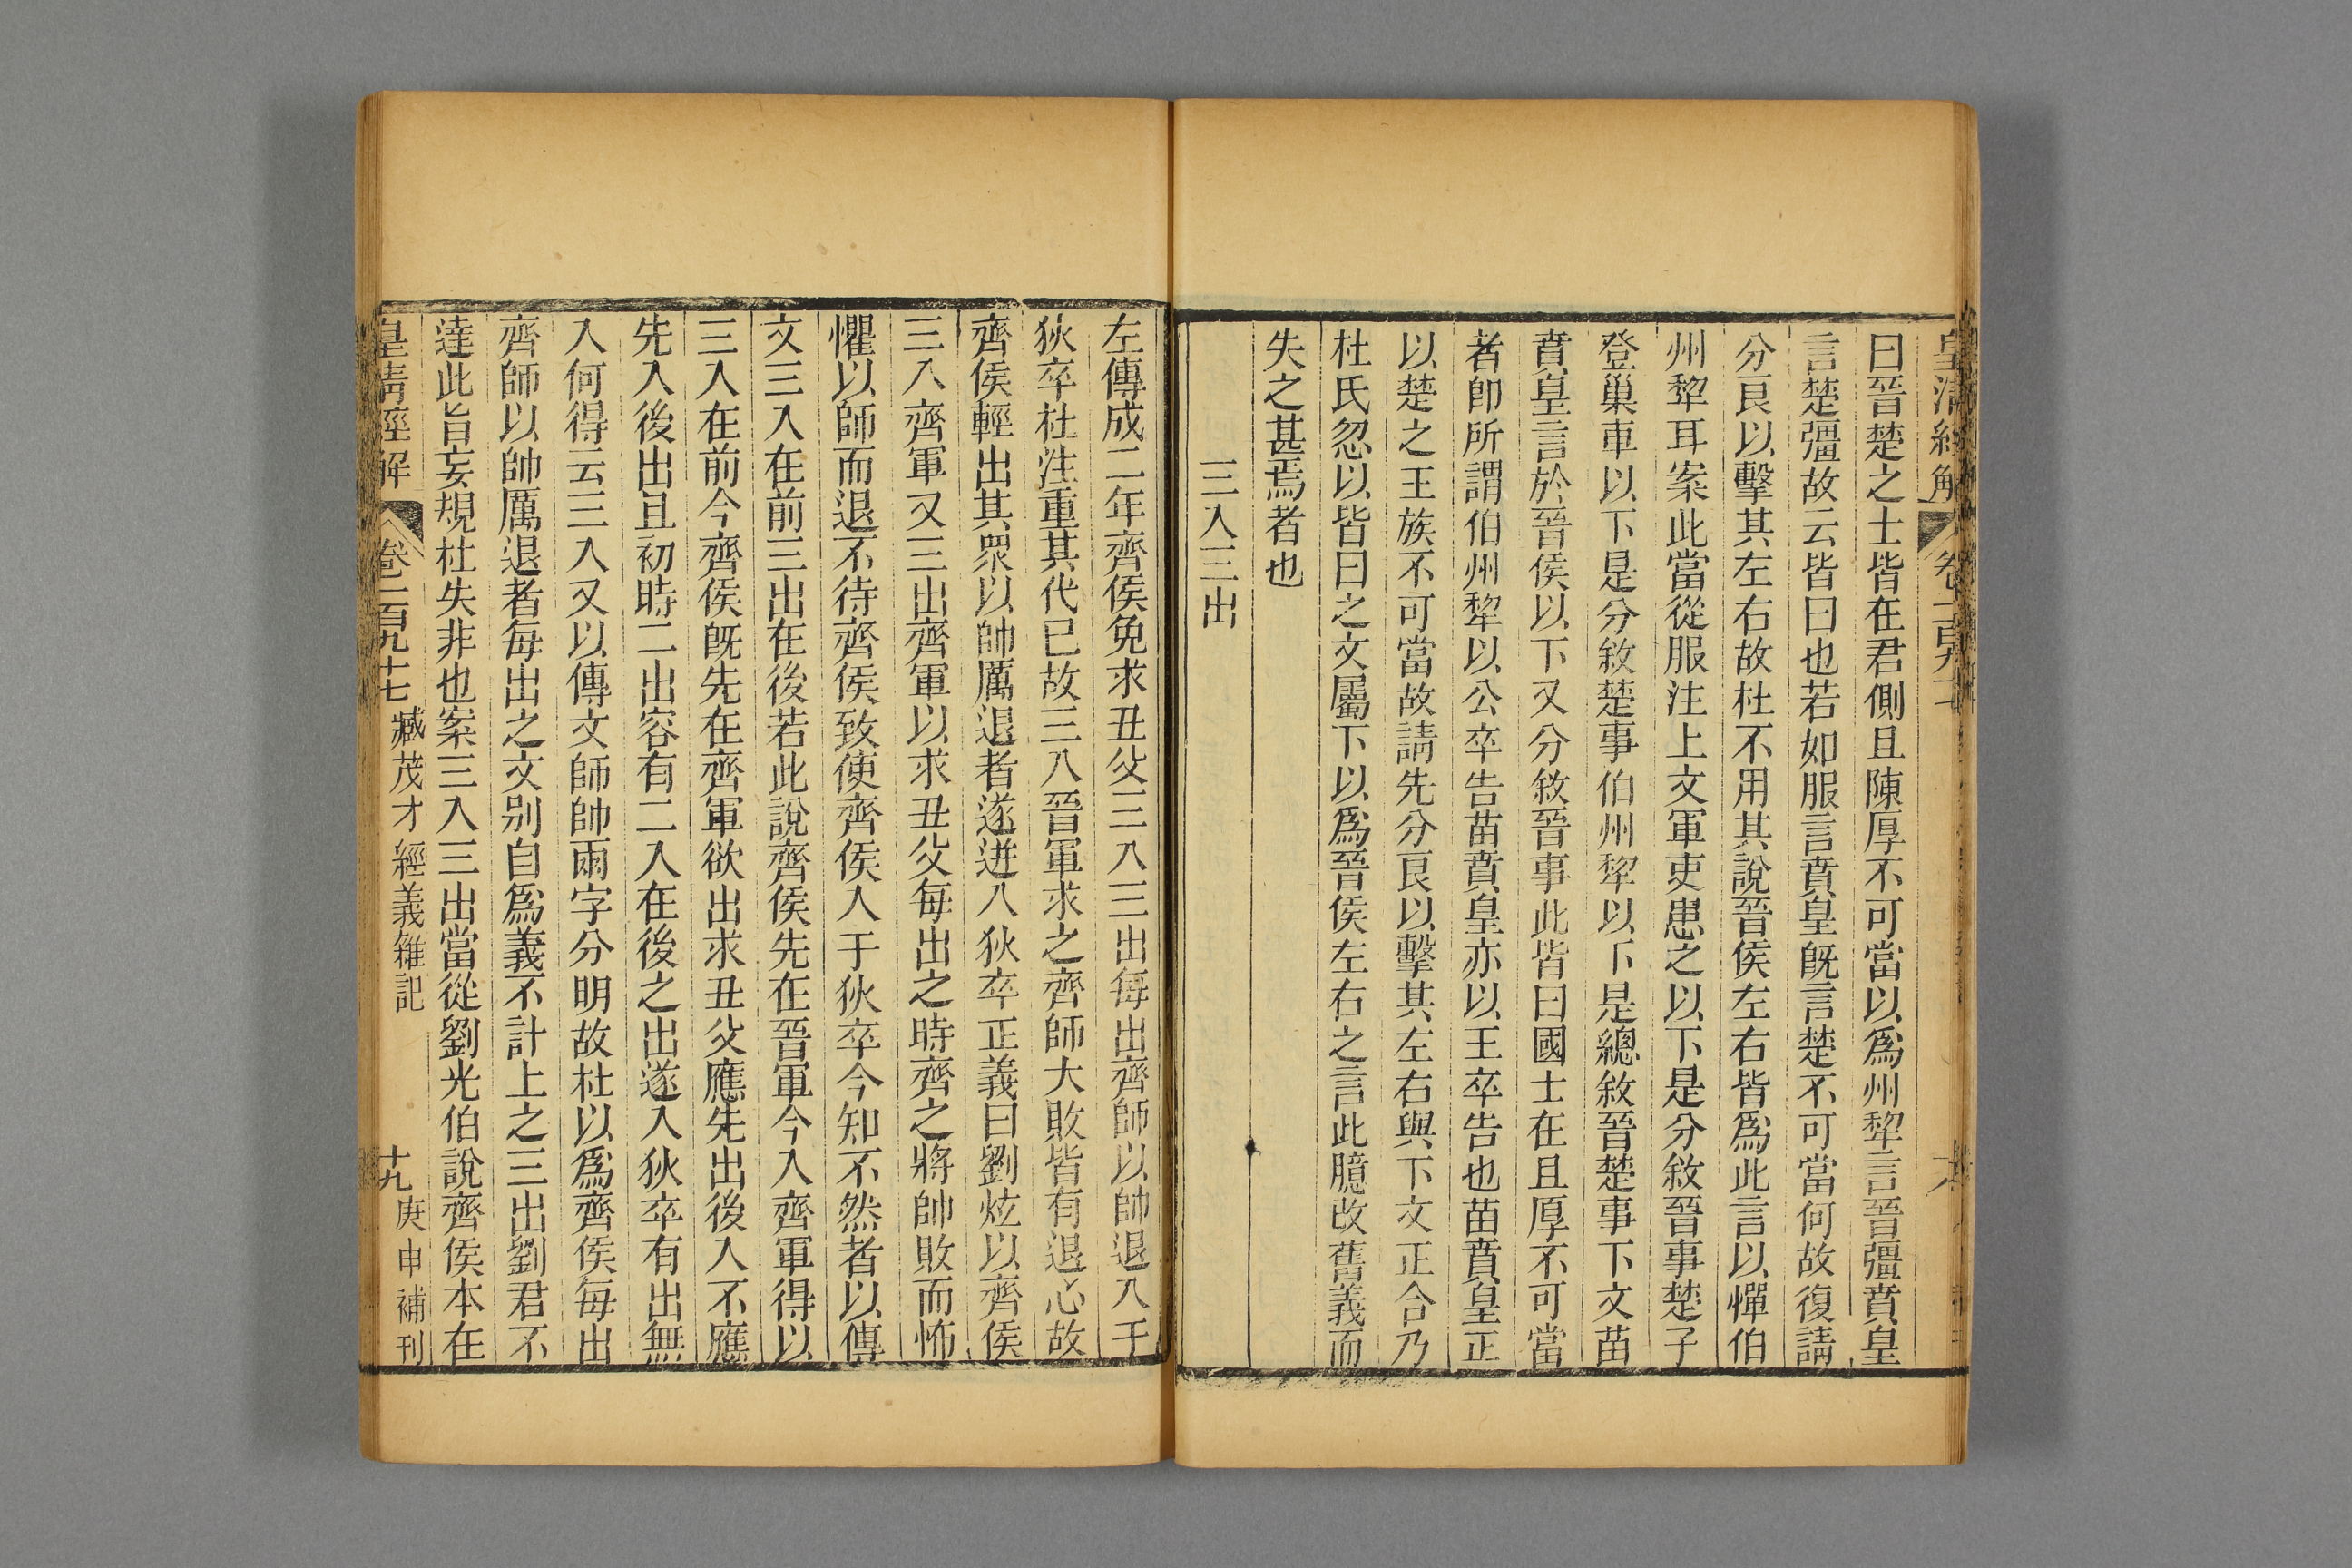 皇清經解 卷一百九十七
曰晉楚之士皆在君側且陳厚不可當以爲州犂言晉彊賁皇
言楚彊故云皆曰也若如服言賁皇旣言楚不可當何故復請
分良以擊其左右故杜不用其說晉侯左右皆爲此言以憚伯
州犂耳案此當從服注上文軍吏患之以下是分敘晉事楚子
登巢車以下是分敘楚事伯州犂以下是總敘晉楚事下文苗
賁皇言於晉侯以下又分敘晉事此皆曰國士在且厚不可當
者卽所謂伯州犂以公卒告苗賁皇亦以王卒告也苗賁皇正
以楚之王族不可當故請先分良以擊其左右與下文正合乃
杜氏忽以皆曰之文屬下以爲晉侯左右之言此臆改舊義而
失之甚焉者也
三入三出
左傳成二年齊侯免求丑父三入三出每出齊師以帥退入于
狄卒杜注重其代已故三入晉軍求之齊師大敗皆有退心故
齊侯輕出其眾以帥厲退者遂迸入狄卒正義曰劉炫以齊侯
三入齊軍又三出齊軍以求丑父每出之時齊之將帥敗而怖
懼以師而退不待齊侯致使齊侯入于狄卒今知不然者以傳
文三入在前三出在後若此說齊侯先在晉軍今入齊軍得以
三入在前今齊侯旣先在齊軍欲出求丑父應先出後入不應
先入後出且初時二出容有二入在後之出遂入狄卒有出無
入何得云三入又以傳文師帥兩字分明故杜以爲齊侯每出
齊師以帥厲退者每出之文别自爲義不計上之三出劉君不
達此旨妄規杜失非也案三入三出當從劉光伯說齊侯本在
皇清經解 卷一百九十七 臧茂才經義雜記 十九 庚申補刊